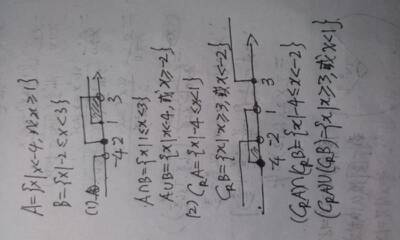 A={x|x<-4,或x≥1}
B={x|-2≤x<3}
(1)
-4 -2 1 3
A∩B={x|1≤x<3}
A∪B={x|x<-4,或x≥-2}
(2) C_RA={x|-4≤x<1}
C_RB={x|x≥3,或x<-2}
-4 -2 1 3
(C_RA)∩(C_RB)={x|-4≤x<-2}
(C_RA)∪(C_RB)={x|x≥3,或x<1}